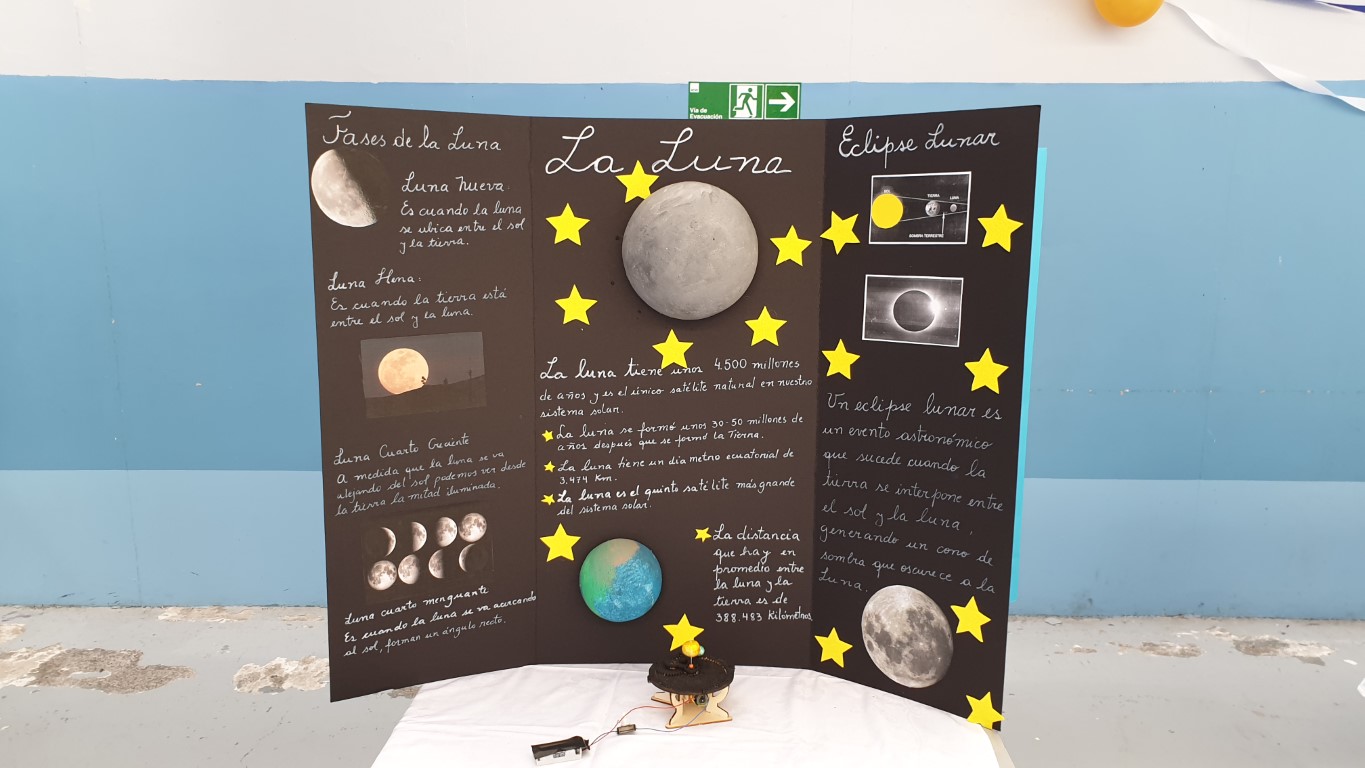 Vía de
Evacuación
Fases de la Luna
Luna Nueva.
Es cuando la luna
se ubica entre el sol
y la tierra.
Luna Llena:
Es cuando la tierra está
entre el sol y la luna.
Luna Cuarto Creciente
A medida que la luna se va
alejando del sol podemos ver desde
la tierra la mitad iluminada.
Luna cuarto menguante
Es cuando la luna se va acercando
al sol, forman un ángulo recto.
La Luna
La luna tiene unos 4.500 millones
de años y es el único satélite natural en nuestro
sistema solar.
La luna se formó unos 30-50 millones de
años después que se formó la Tierra.
La luna tiene un diametro ecuatorial de
3.474 Km.
La luna es el quinto satélite más grande
del sistema solar.
La distancia
que hay en
promedio entre
la luna y la
tierra es de
388.483 Kilómetros
Eclipse Lunar
SOL
TIERRA
LUNA
SOMBRA TERRESTRE
Un eclipse lunar es
un evento astronómico
que sucede cuando la
tierra se interpone entre
el sol y la luna,
generando un cono de
sombra que oscurece a la
Luna.